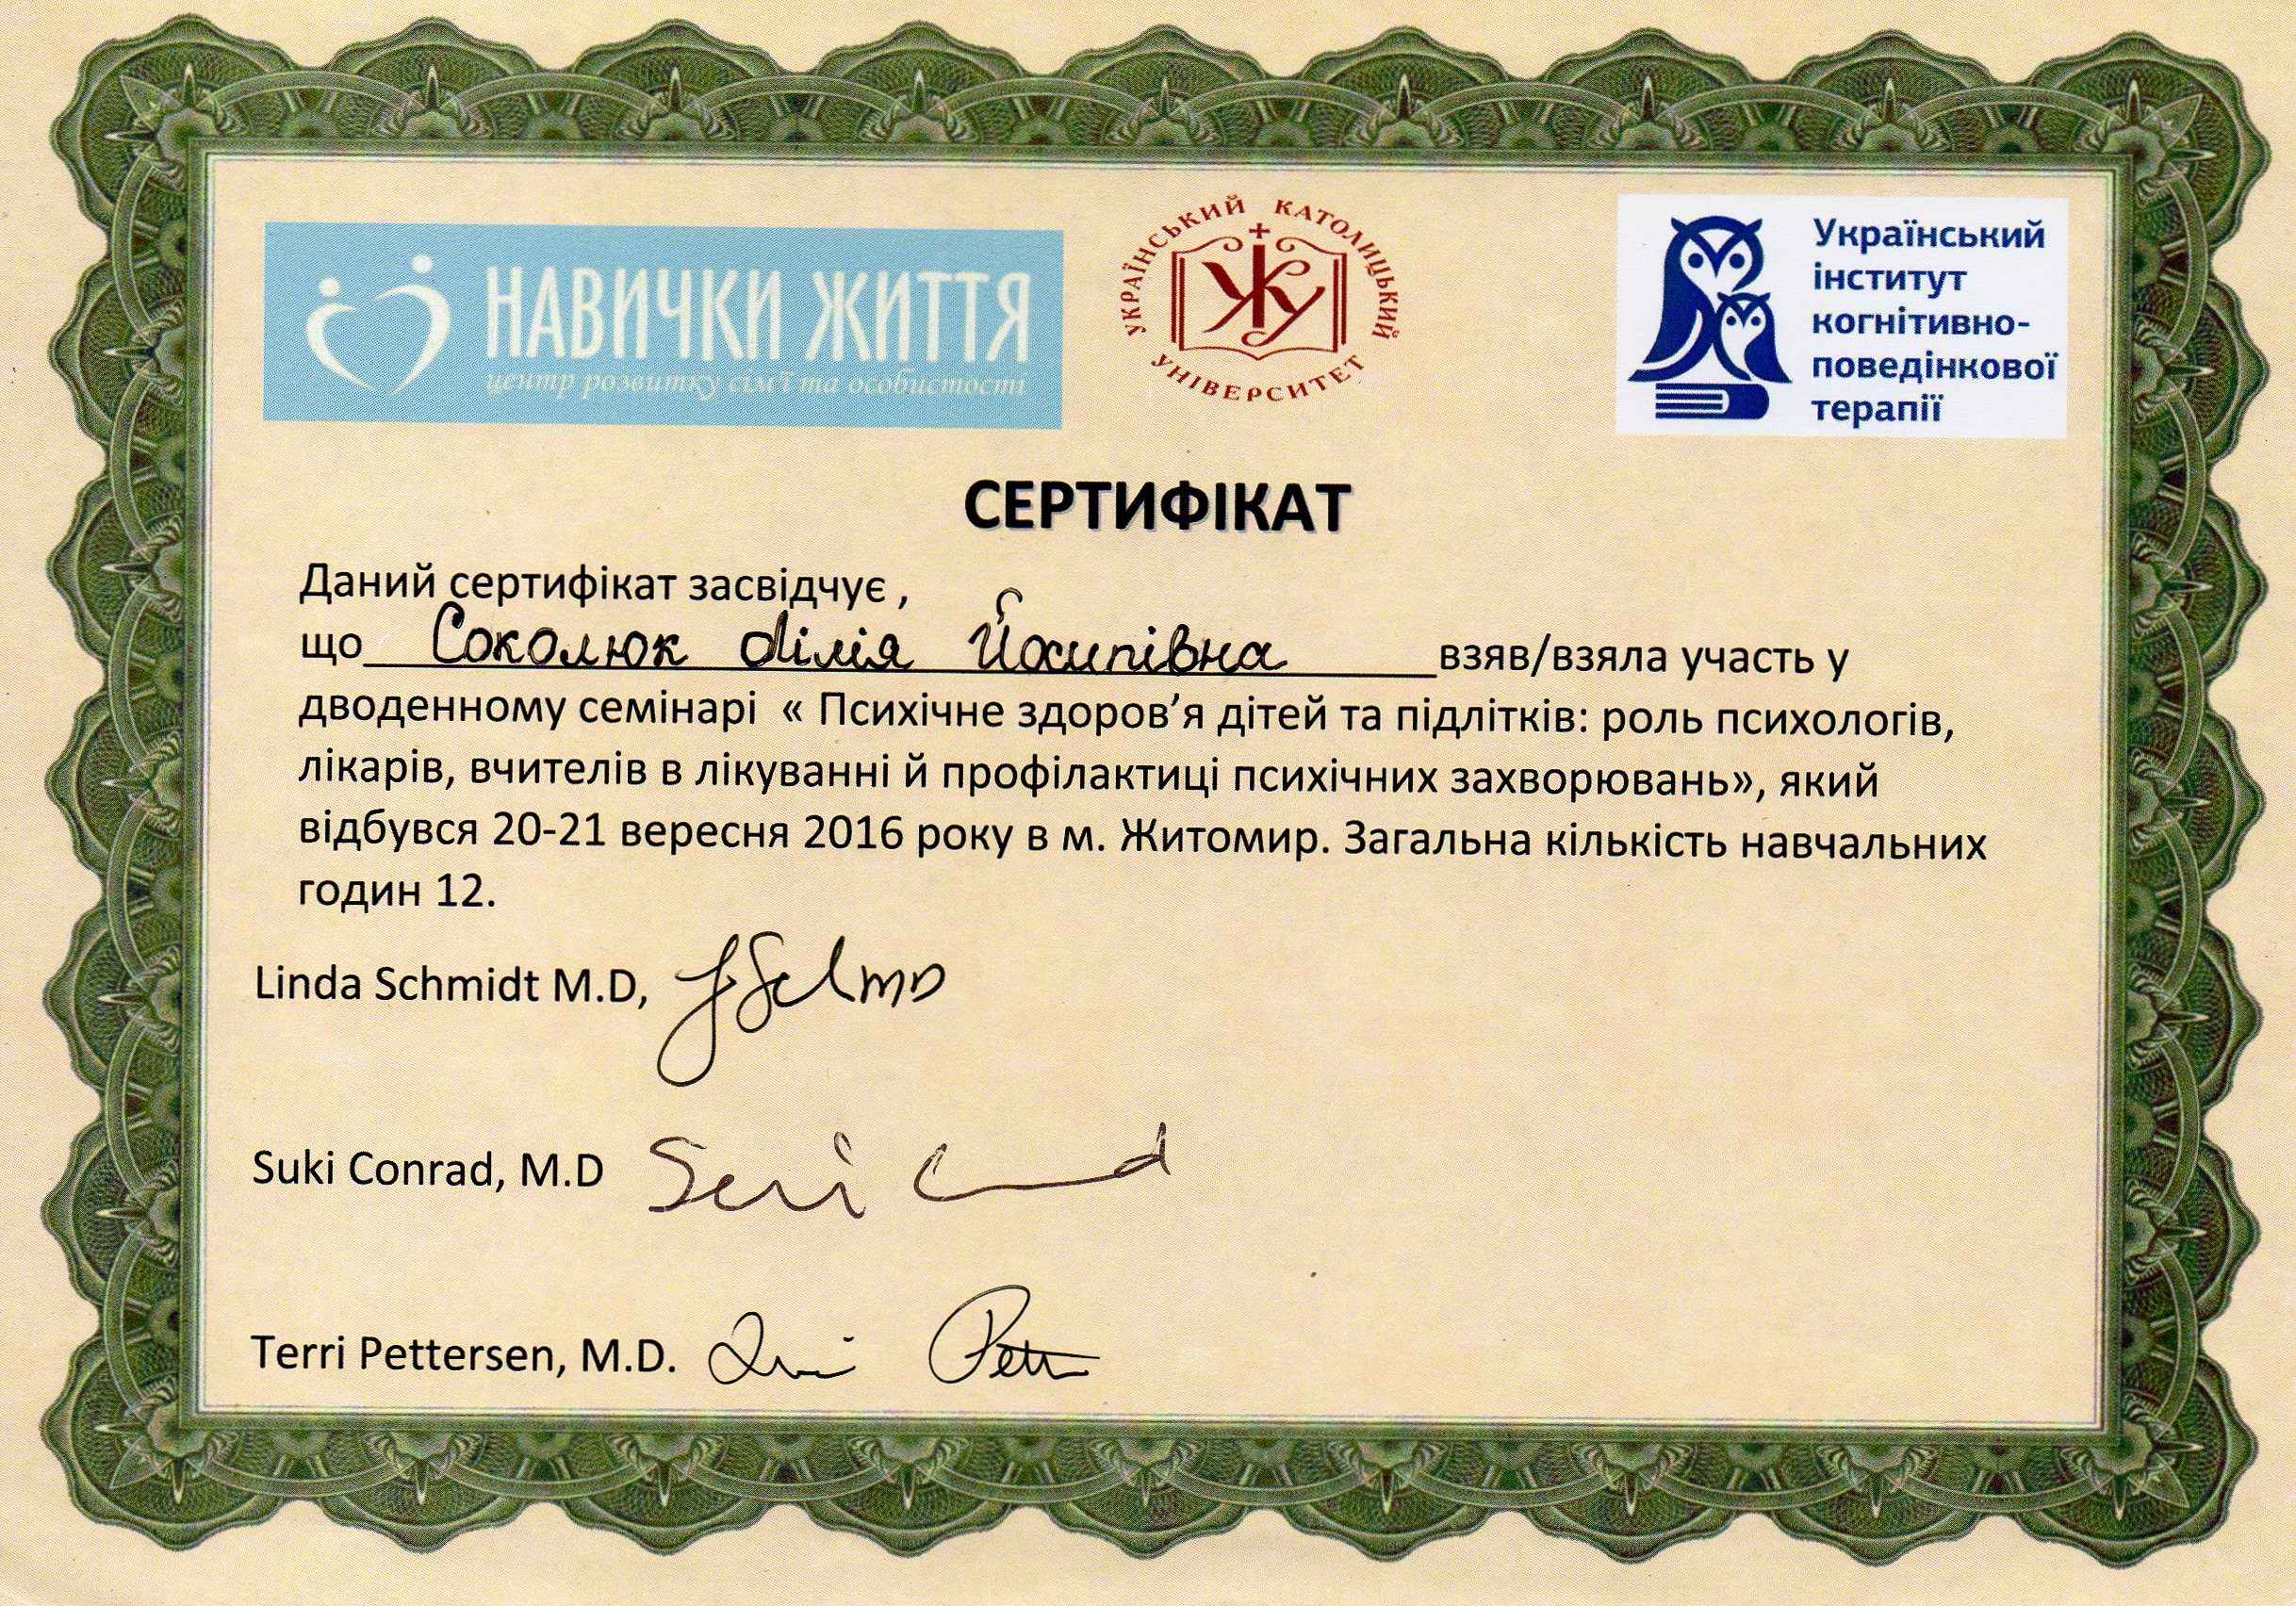 НАВИЧКИ ЖИТТЯ
центр розвитку сім'ї та особистості
УКРАЇНСЬКИЙ КАТОЛИЦЬКИЙ
УНІВЕРСИТЕТ
Український
інститут
когнітивно-
поведінкової
терапії
СЕРТИФІКАТ
Даний сертифікат засвідчує ,
що Соколюк Лілія Йосипівна взяв/взяла участь у
дводенному семінарі « Психічне здоров’я дітей та підлітків: роль психологів,
лікарів, вчителів в лікуванні й профілактиці психічних захворювань», який
відбувся 20-21 вересня 2016 року в м. Житомир. Загальна кількість навчальних
годин 12.
Linda Schmidt M.D,
Suki Conrad, M.D
Terri Pettersen, M.D.